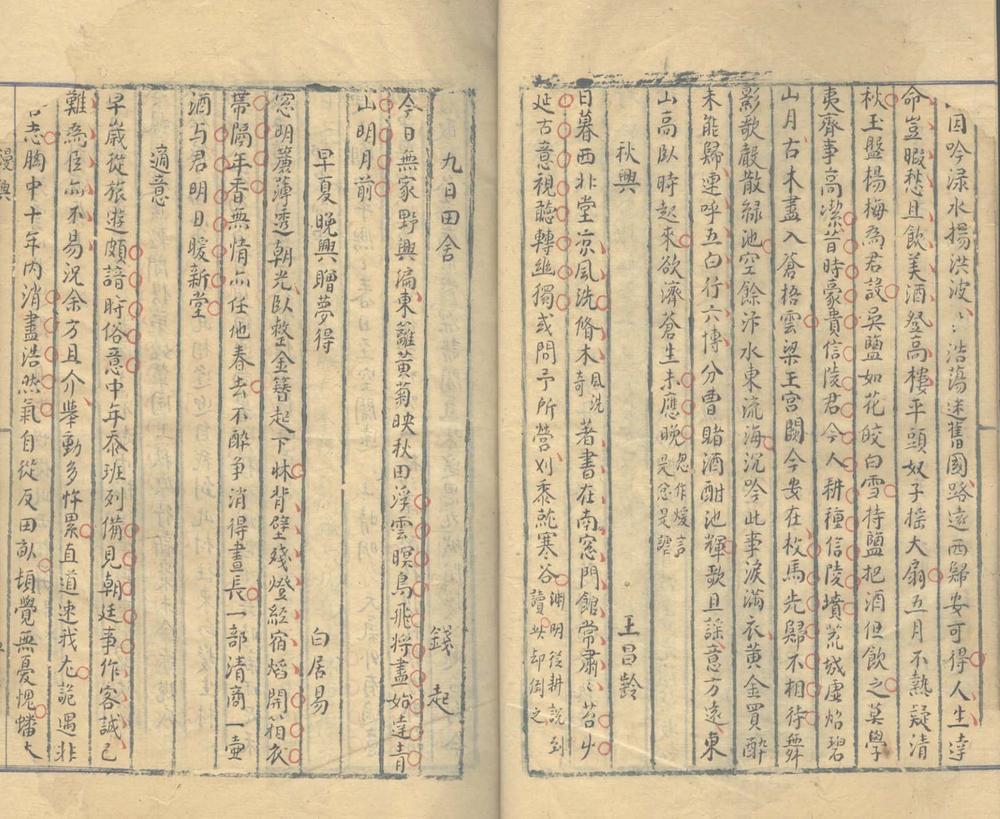 因吟渌水揚洪波、、浩蕩迷舊國路遠西歸安可得人生達
命豈暇愁且飲美酒登高樓平頭奴子搖大扇五月不熱疑清
秋玉盤楊梅為君設吳鹽如花皎白雪持鹽把酒但飲之莫學
夷齊事高潔昔時豪貴信陵君今人耕種信陵墳荒城虛焰碧
山月古木盡入蒼梧雲梁王宮闕今安在枚馬先歸不相待舞
影歌聲散綠池空餘汴水東流海沉吟此事淚滿衣黃金買醉
未能歸連呼五白行六博分曹賭酒酣池輝歌且謠意方遠東
山高臥時起來欲濟蒼生未應晚忽作 言是 是
秋興 王昌齡
日暮西北堂涼風洗脩木風洗奇著書在南窓門館常肅、苔少
延古意視聽轉幽獨或問予所營刈黍就寒谷淵明從耕說到讀此却倒之
九日田舍 錢起
今日無家野興偏東籬黃菊映秋田浮雲暝鳥飛將盡始達青
山明月前
早夏晚興贈夢得 白居易
窓明簾薄透朝光臥整金簪起下牀背壁殘燈經宿焰開箱衣
帶隔年香無情亦任他春去不醉爭消得晝長一部清商一壷
酒与君明日暖新堂
適意
早歲從旅遊頗諳時俗意中年忝班列備見朝廷事作客誠已
難為臣亦不易況余方且介舉動多忤累直道速我尤詭遇非
吾志胸中十年內消盡浩然氣自從反田畝頓覺無憂愧蟠大
漫興